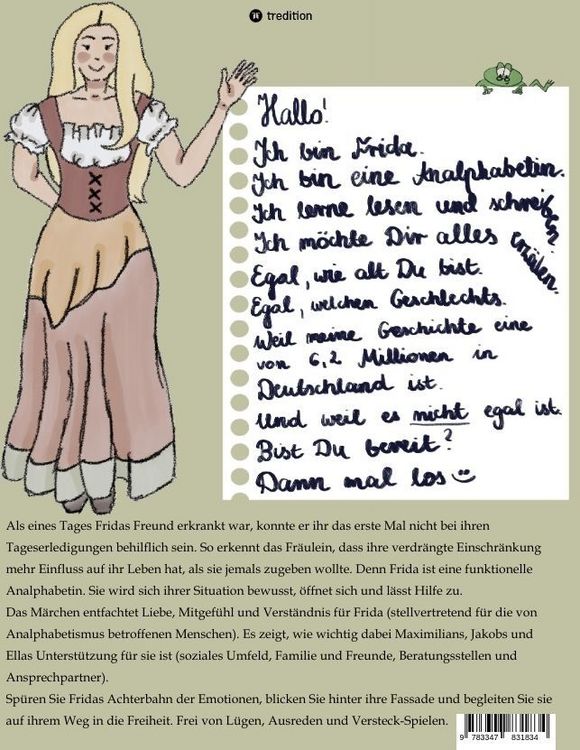 tredition
Hallo!
Ich bin Frida.
Ich bin eine Analphabetin.
Ich lerne lesen und schreiben
Ich möchte Dir alles erzählen.
Egal, wie alt Du bist.
Egal, welchen Geschlechts.
Weil meine Geschichte eine
von 6,2 Millionen in
Deutschland ist.
Und weil es nicht egal ist.
Bist Du bereit?
Dann mal los
Als eines Tages Fridas Freund erkrankt war, konnte er ihr das erste Mal nicht bei ihren
Tageserledigungen behilflich sein. So erkennt das Fräulein, dass ihre verdrängte Einschränkung
mehr Einfluss auf ihr Leben hat, als sie jemals zugeben wollte. Denn Frida ist eine funktionelle
Analphabetin. Sie wird sich ihrer Situation bewusst, öffnet sich und lässt Hilfe zu.
Das Märchen entfachtet Liebe, Mitgefühl und Verständnis für Frida (stellvertretend für die von
Analphabetismus betroffenen Menschen). Es zeigt, wie wichtig dabei Maximilians, Jakobs und
Ellas Unterstützung für sie ist (soziales Umfeld, Familie und Freunde, Beratungsstellen und
Ansprechpartner).
Spüren Sie Fridas Achterbahn der Emotionen, blicken Sie hinter ihre Fassade und begleiten Sie sie
auf ihrem Weg in die Freiheit. Frei von Lügen, Ausreden und Versteck-Spielen.
9 783347 831834